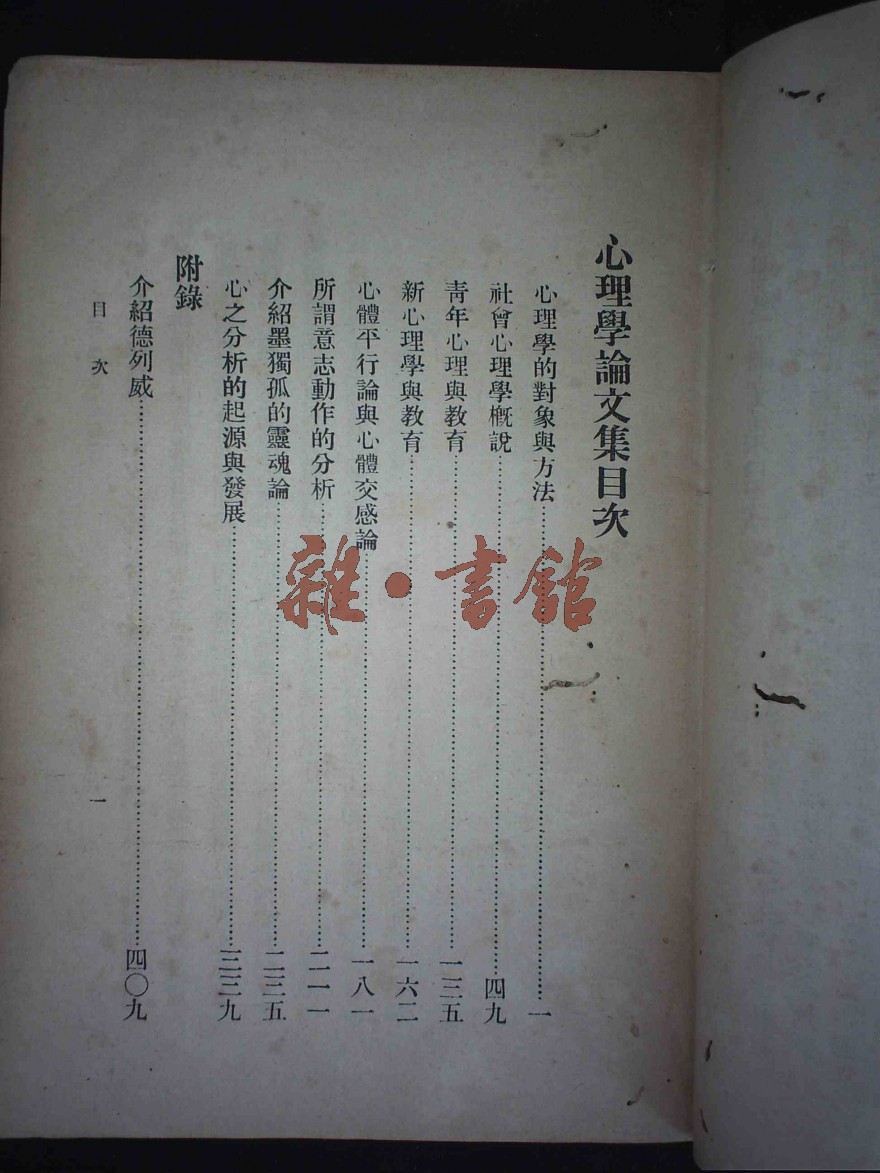 心理學論文集目次
心理學的對象與方法……一
社會心理學槪說……四九
靑年心理與敎育……一三五
新心理學與敎育……一六二
心體平行論與心體交感論……一八一
所謂意志動作的分析……二一一
介紹墨獨孤的靈魂論……二三五
心之分析的起源與發展……三三九
附錄
介紹德列威……四〇九
目次
一
雜·書館